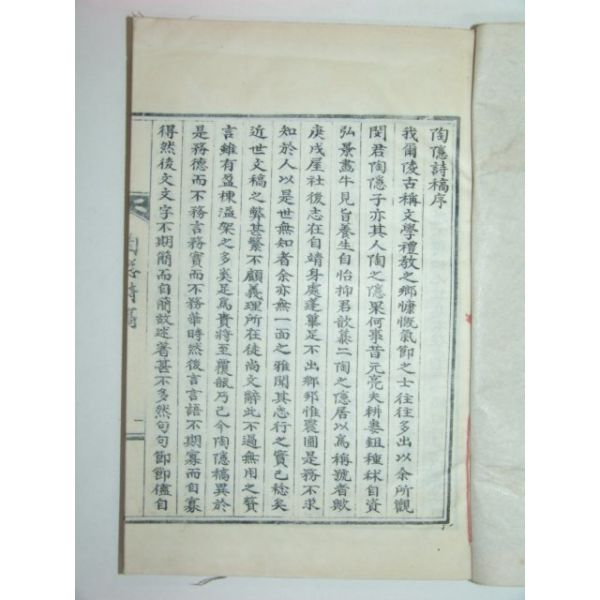 陶隱詩稿序
我爾陵古稱文學禮敎之鄕慷慨氣節之士往往多出以余所觀
閔君陶隱子亦其人陶之隱果何衆昔元亮夫耕妻鋤種秫自資
弘景畵牛見旨養生自怡抑君歆慕二陶之隱居以爲稱號者歟
庚戌屋社後志在自靖身處蓬蓽足不出鄕邦惟農圃是務不求
知於人以是世無知者余亦無一面之雅聞其志行之實已稔矣
近世文稿之弊甚繁不顧義理所在徒尙文辭此不過無用之贅
言雖有盈棟溢架之多奚足爲貴將至覆瓿乃已今陶隱稿異於
是務德而不務言務實而不務華時然後言言語不期寡而自寡
得然後文文字不期簡而自簡故述著甚不多然句句節節儘自
陶隱詩稿
一